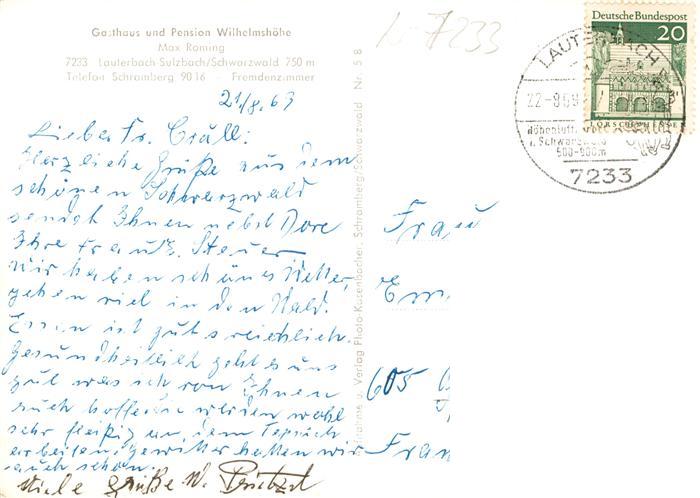 Gasthaus und Pension Wilhelmshöhe
Max Roming
7233 Lauterbach-Sulzbach/Schwarzwald 750 m
Telefon Schramberg 9016 - Fremdenzimmer
21/8.69
Liebe Fr. Cräll:
Herzliche Grüße aus dem
schönen Schwarzwald
sendet Ihnen nebst Dore
Ihre Frau E. Steuer
Wir haben schönes Wetter,
gehen viel in den Wald.
Essen ist gut & reichlich.
Gesundheitlich geht es uns
gut was ich von Ihnen
auch hoffe. Sie werden wohl
sehr fleißig an dem Teppich
arbeiten. Gewitter hatten wir
auch schon.
Viele Grüße W.
Aufnahme u. Verlag Photo-Kusenbacher, Schramberg/Schwarzwald Nr. 58
7233
Deutsche Bundespost
20
LORSCH HESSEN
LAUTERBACH
22.-8.69
Höhenluft
i. Schwarzwald
500-900m
7233
Frau
Em
605
Fran